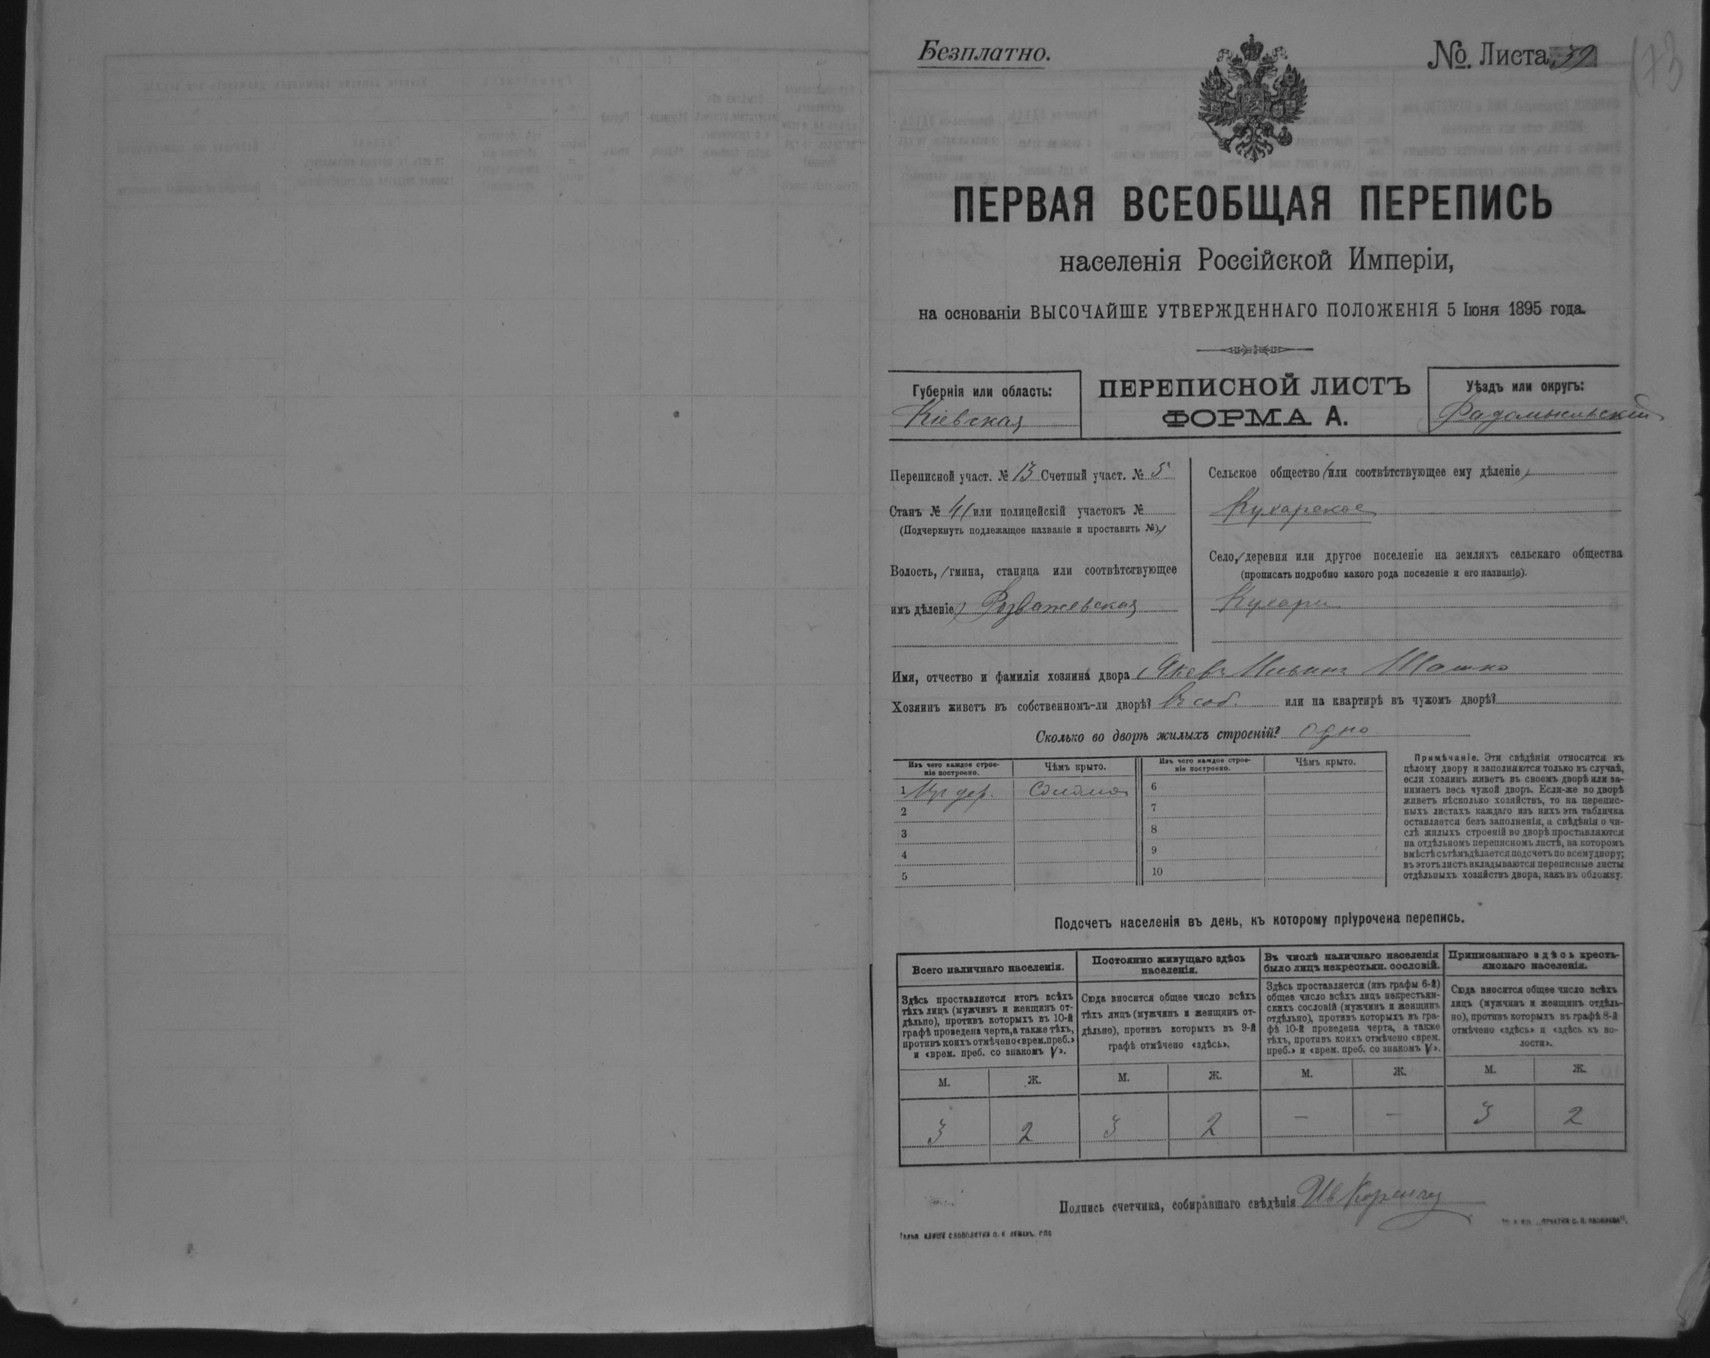 Безплатно.
№. Листа 39
173
ПЕРВАЯ ВСЕОБЩАЯ ПЕРЕПИСЬ
населенія Россійской Имперіи,
на основаніи ВЫСОЧАЙШЕ УТВЕРЖДЕННАГО ПОЛОЖЕНІЯ 5 Іюня 1895 года.
Губернія или область:
Кіевская
ПЕРЕПИСНОЙ ЛИСТЪ
ФОРМА А.
Уѣздъ или округъ:
Радомысльскій
Переписной участ. № 13 Счетный участ. № 5
Станъ № 4 или полицейскій участокъ №
(Подчеркнуть подлежащее названіе и проставить №)
Волость, гмина, станица или соотвѣтствующее
имъ дѣленіе) Розважевская
Сельское общество (или соотвѣтствующее ему дѣленіе)
Кухарское
Село, деревня или другое поселеніе на земляхъ сельскаго общества
(прописать подробно какого рода поселеніе и его названіе).
Кухари
Имя, отчество и фамилія хозяина двора Яковъ Ильинъ Шашко
Хозяинъ живетъ въ собственномъ-ли дворѣ? въ соб. или на квартирѣ въ чужомъ дворѣ?
Сколько во дворѣ жилыхъ строеній? одно
Изъ чего каждое строе-
ніе построено.
Чѣмъ крыто.
Изъ чего каждое строе-
ніе построено.
Чѣмъ крыто.
1 Изъ дер. Солома 6
2 7
3 8
4 9
5 10
Примѣчаніе. Эти свѣдѣнія относятся къ
цѣлому двору и заполняются только въ случаѣ,
если хозяинъ живетъ въ своемъ дворѣ или за-
нимаетъ весь чужой дворъ. Если-же во дворѣ
живетъ нѣсколько хозяйствъ, то на перепис-
ныхъ листахъ каждаго изъ нихъ эта табличка
оставляется безъ заполненія, а свѣдѣнія о чи-
слѣ жилыхъ строеній во дворѣ проставляются
на отдѣльномъ переписномъ листѣ, на которомъ
вмѣстѣ съ тѣмъ дѣлается подсчетъ по всему двору;
въ этотъ листъ вкладываются переписные листы
отдѣльныхъ хозяйствъ двора, какъ въ обложку.
Подсчетъ населенія въ день, къ которому пріурочена перепись.
Всего наличнаго населенія.
Здѣсь проставляется итогъ всѣхъ
тѣхъ лицъ (мужчинъ и женщинъ от-
дѣльно), противъ которыхъ въ 10-й
графѣ проведена черта, а также тѣхъ,
противъ коихъ отмѣчено «врем. преб.»
и «врем. преб. со знакомъ V».
Постоянно живущаго здѣсь
населенія.
Сюда вносится общее число всѣхъ
тѣхъ лицъ (мужчинъ и женщинъ от-
дѣльно), противъ которыхъ въ 9-й
графѣ отмѣчено «здѣсь».
Въ числѣ наличнаго населенія
было лицъ некрестьян. сословій.
Здѣсь проставляется (изъ графы 6-й)
общее число всѣхъ лицъ некрестьян-
скихъ сословій (мужчинъ и женщинъ
отдѣльно), противъ которыхъ въ гра-
фѣ 10-й проведена черта, а также
тѣхъ, противъ коихъ отмѣчено «врем.
преб.» и «врем. преб. со знакомъ V».
Приписаннаго здѣсь кресть-
янскаго населенія.
Сюда вносится общее число всѣхъ
лицъ (мужчинъ и женщинъ отдѣль-
но), противъ которыхъ въ графѣ 8-й
отмѣчено «здѣсь» и «здѣсь въ во-
лости».
М. Ж. М. Ж. М. Ж. М. Ж.
3 2 3 2 — — 3 2
Подпись счетчика, собиравшаго свѣдѣнія